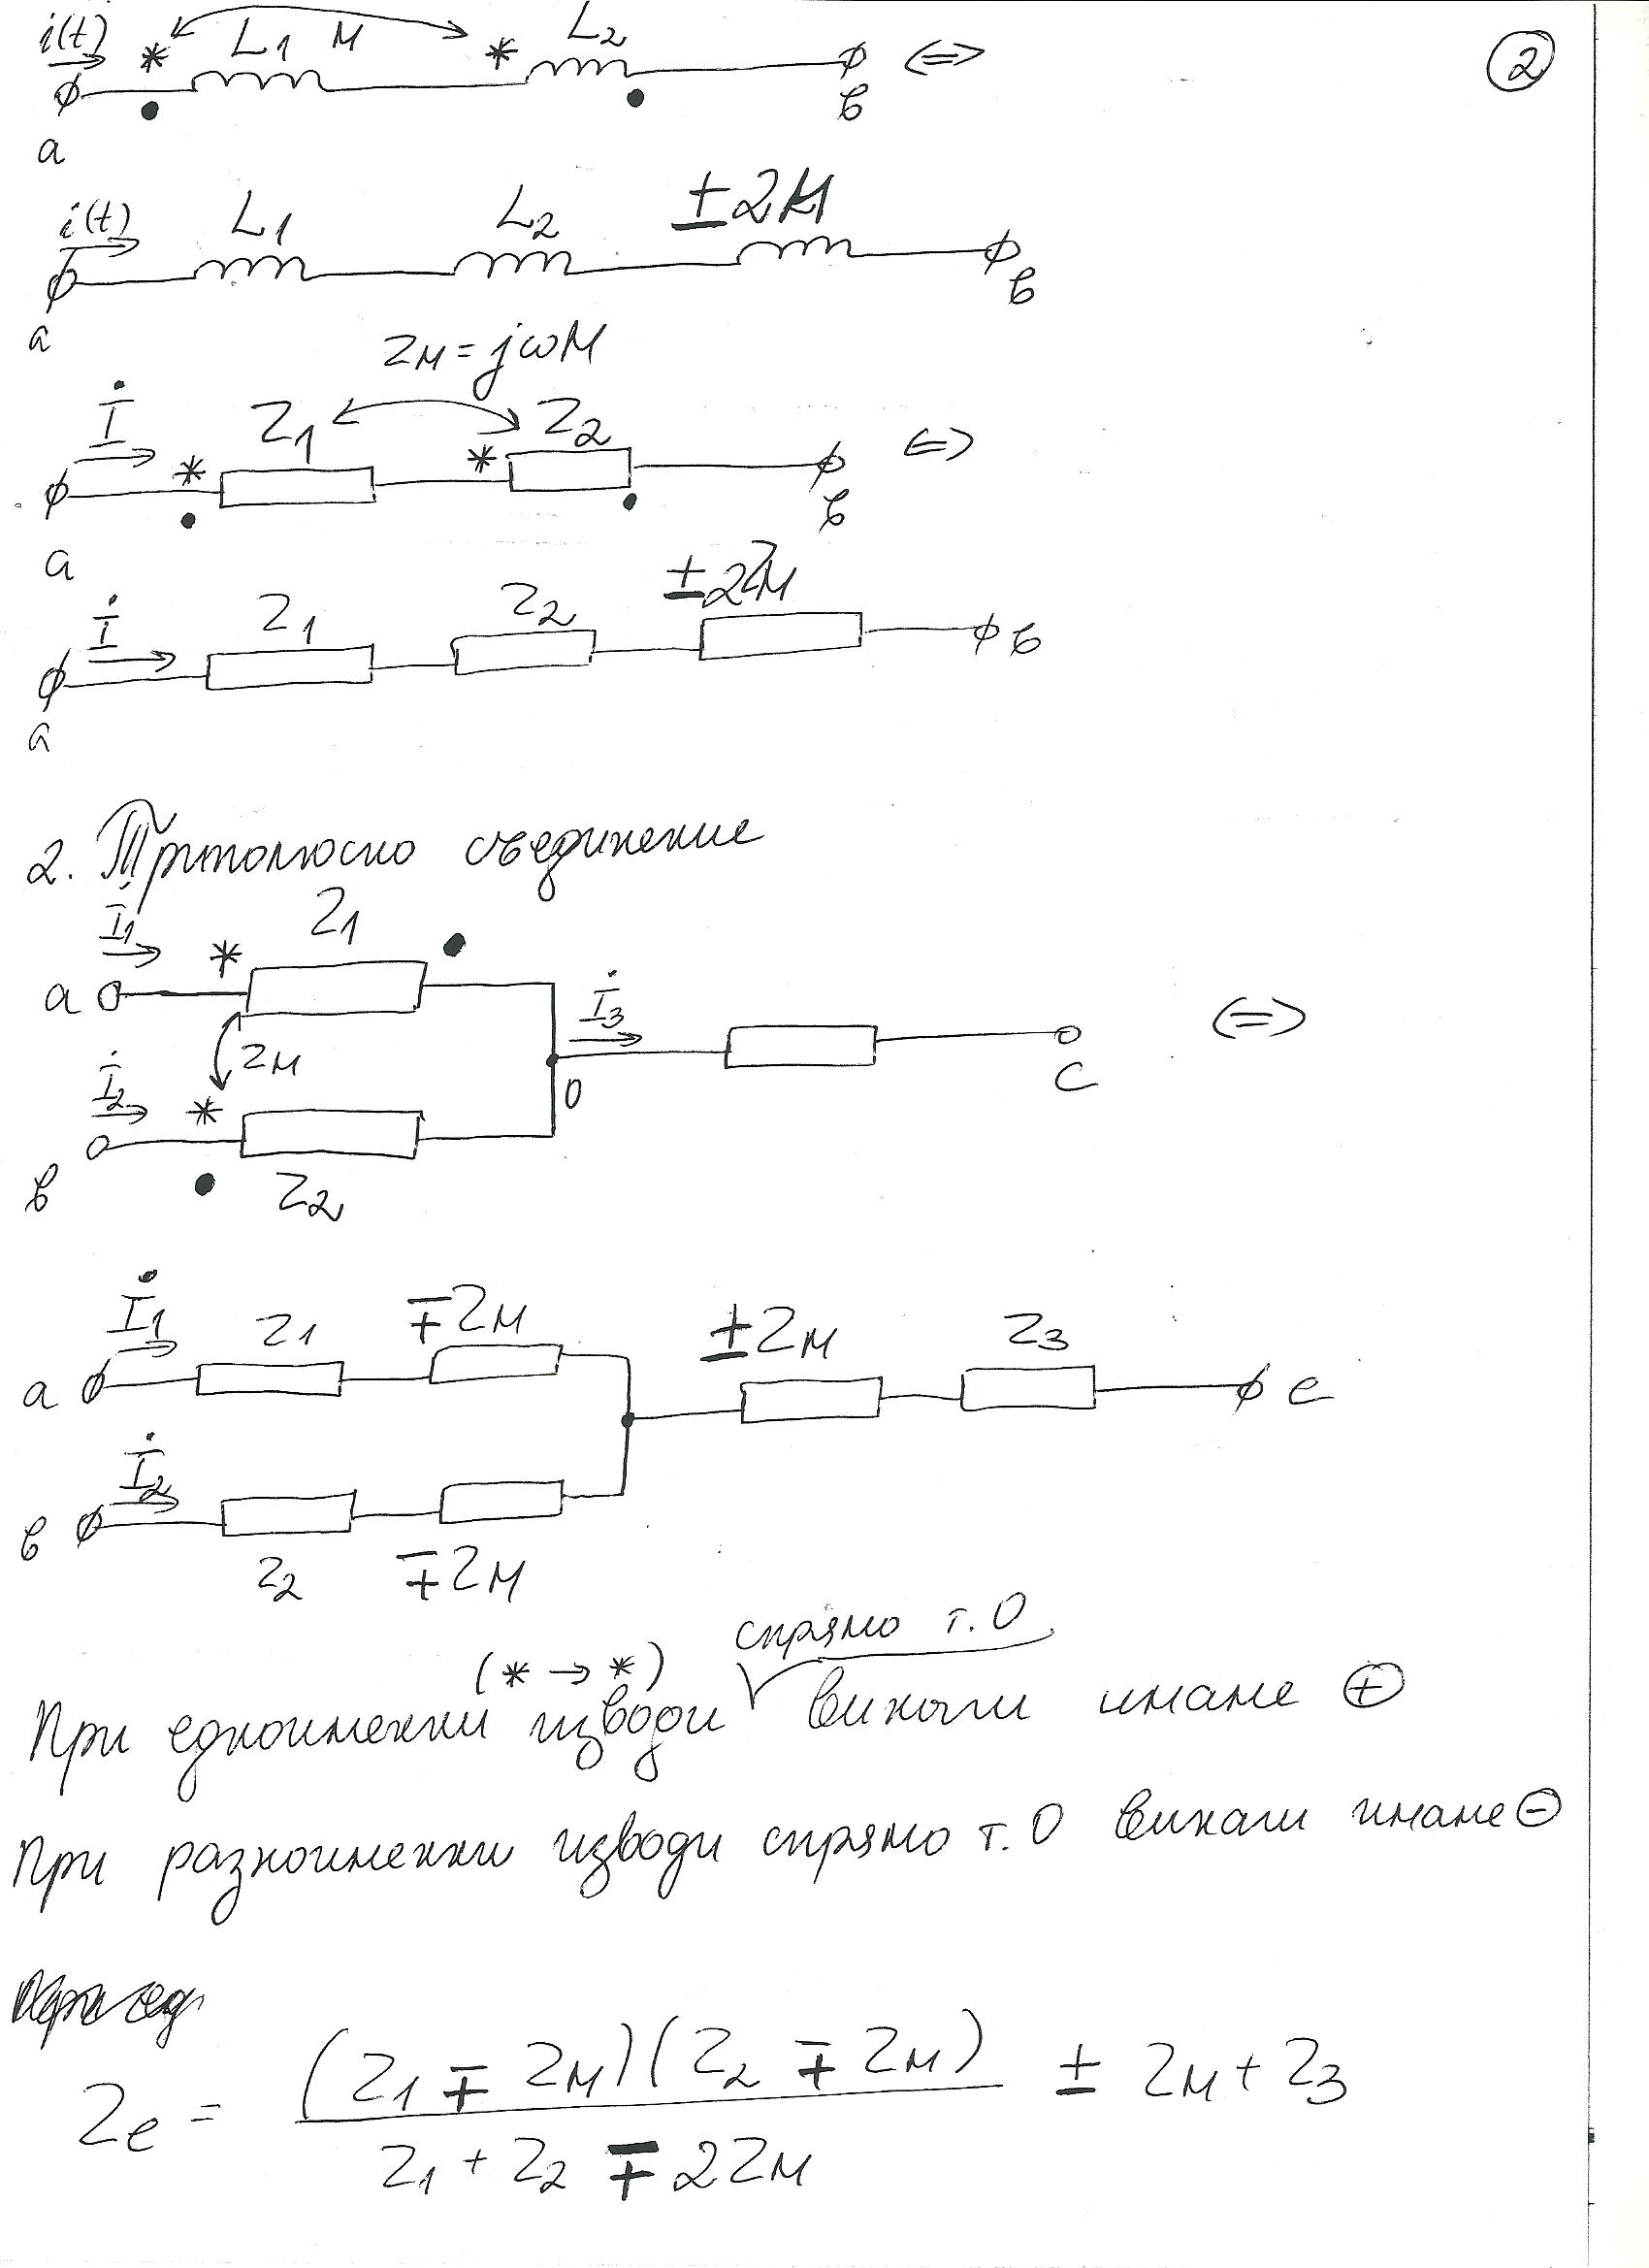 i(t) * L1 M * L2 <=> ②
a в
i(t) L1 L2 ±2M
a в
ZM = jωM
İ * Z1 * Z2 <=>
a в
İ Z1 Z2 ±2ZM
a в
2. Триполюсно съединение
İ1 * Z1
a İ3 <=>
ZM
İ2 * 0 c
в Z2
İ1 Z1 ∓ZM ±ZM Z3
a c
İ2
в Z2 ∓ZM
(* → *) спрямо т. 0
При едноименни изводи винаги имаме ⊕
При разноименни изводи спрямо т. 0 винаги имаме ⊖
Ze = (Z1 ∓ ZM)(Z2 ∓ ZM) ± ZM + Z3
Z1 + Z2 ∓ 2ZM